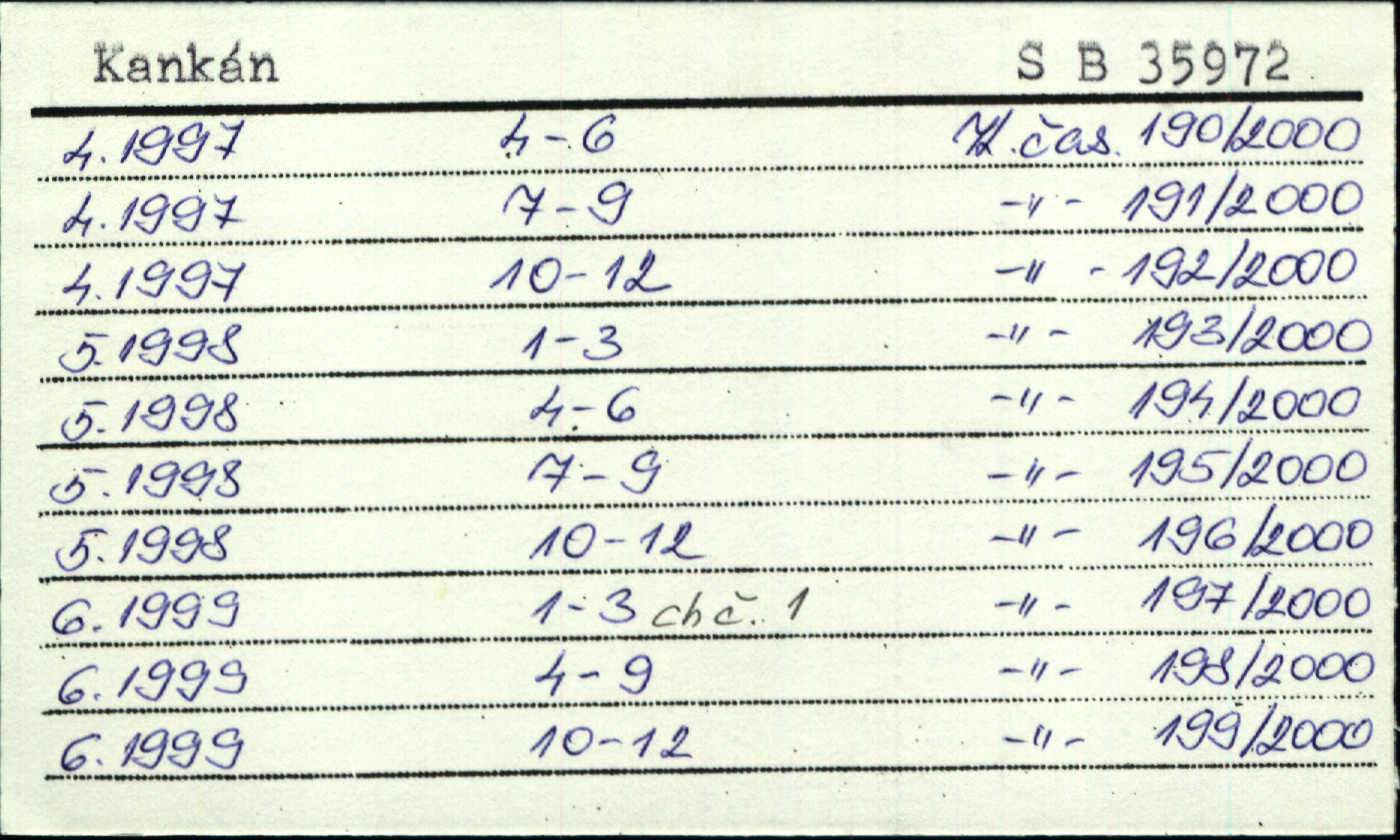 Kankán S B 35972
4.1997 4-6 čas. 190/2000
4.1997 7-9 -"- 191/2000
4.1997 10-12 -"- 192/2000
5.1998 1-3 -"- 193/2000
5.1998 4-6 -"- 194/2000
5.1998 7-9 -"- 195/2000
5.1998 10-12 -"- 196/2000
6.1999 1-3 chč. 1 -"- 197/2000
6.1999 4-9 -"- 198/2000
6.1999 10-12 -"- 199/2000